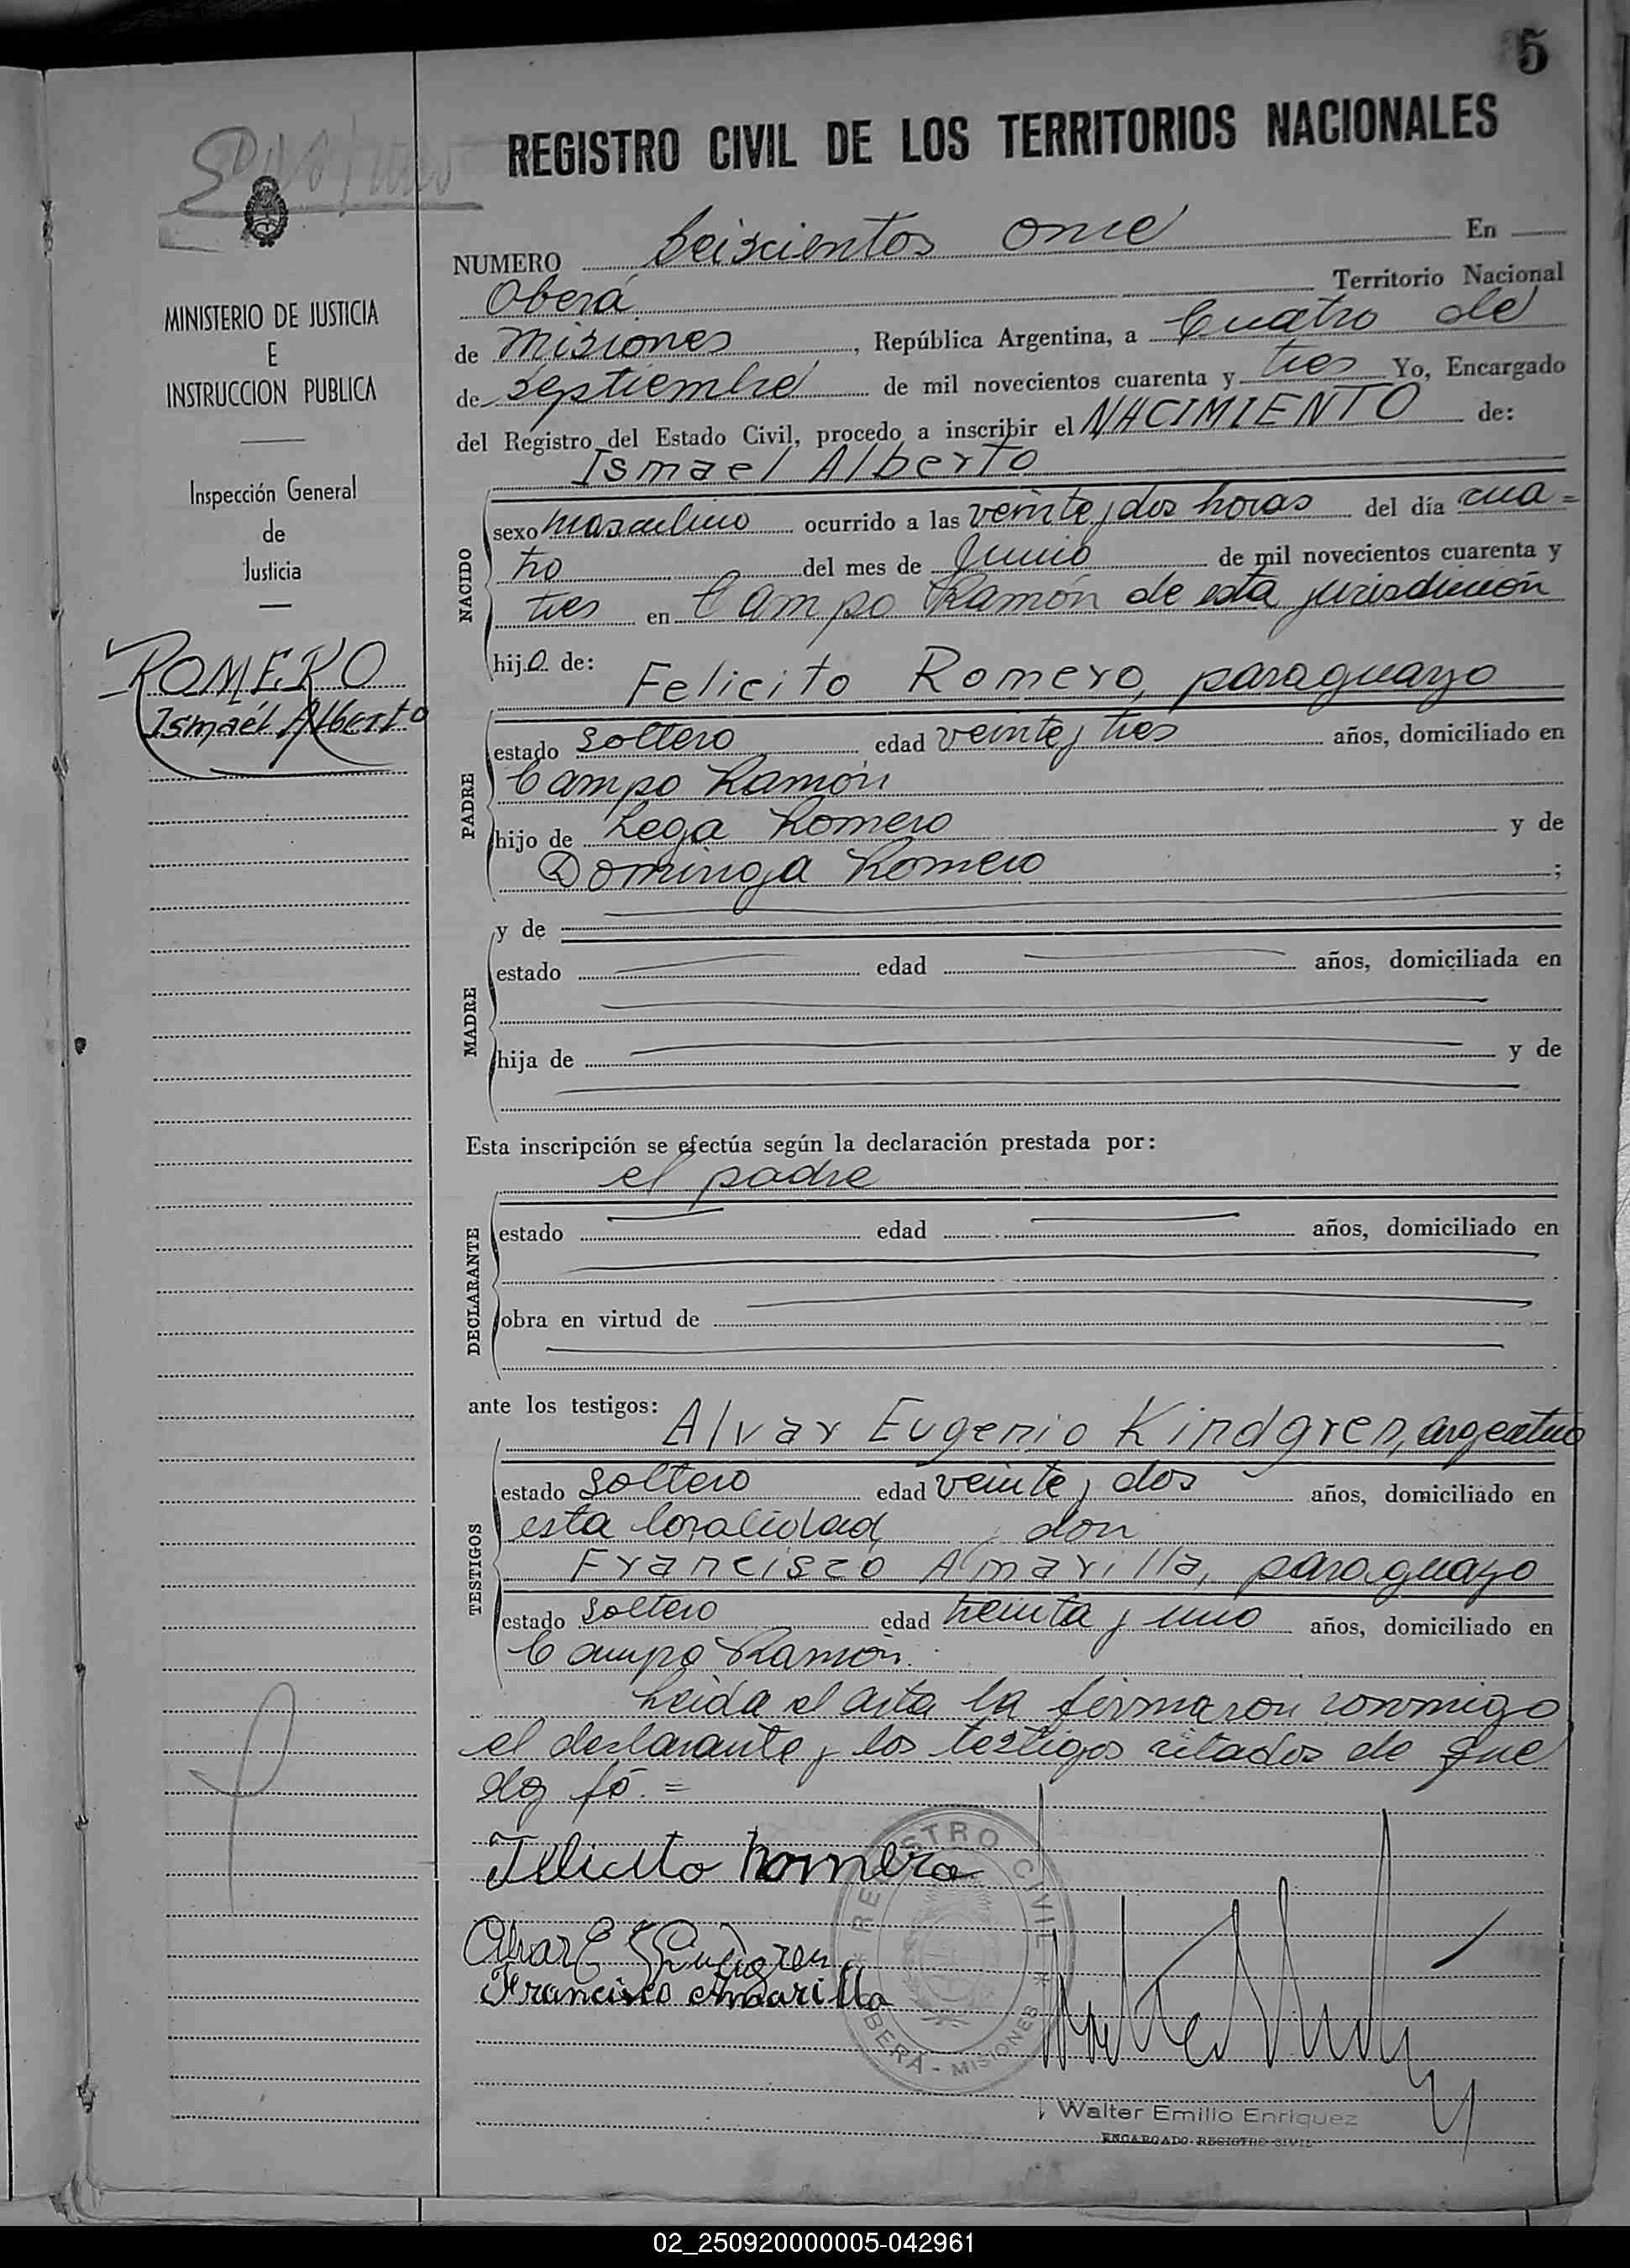 5
REGISTRO CIVIL DE LOS TERRITORIOS NACIONALES
NUMERO Seiscientos once En
Oberá Territorio Nacional
de Misiones, República Argentina, a Cuatro de
de Septiembre de mil novecientos cuarenta y tres Yo, Encargado
del Registro del Estado Civil, procedo a inscribir el NACIMIENTO de:
Ismael Alberto
sexo masculino ocurrido a las veinte y dos horas del día cua=
tro del mes de Junio de mil novecientos cuarenta y
tres en Campo Ramón de esta jurisdicción
hijo de:
Felicito Romero, paraguayo
estado soltero edad veinte y tres años, domiciliado en
Campo Ramón
hijo de Lega Romero y de
Dominga Romero ;
y de
estado edad años, domiciliada en
hija de y de
Esta inscripción se efectúa según la declaración prestada por:
el padre
estado edad años, domiciliado en
obra en virtud de
ante los testigos:
Alvar Eugenio Kindgren, argentino
estado soltero edad veinte y dos años, domiciliado en
esta localidad y don
Francisco Amarilla, paraguayo
estado soltero edad treinta y uno años, domiciliado en
Campo Ramón.
Leida el acta la firmaron conmigo
el declarante y los testigos citados de que
doy fé.=
Felicito Romero
Alvar E Kindgren
Francisco Amarilla
REGISTRO CIVIL
OBERÁ - MISIONES
Walter Emilio Enriquez
ENCARGADO REGISTRO CIVIL
NACIDO
PADRE
MADRE
DECLARANTE
TESTIGOS
MINISTERIO DE JUSTICIA
E
INSTRUCCION PUBLICA
Inspección General
de
Justicia
ROMERO
Ismaél Alberto
02_250920000005-042961